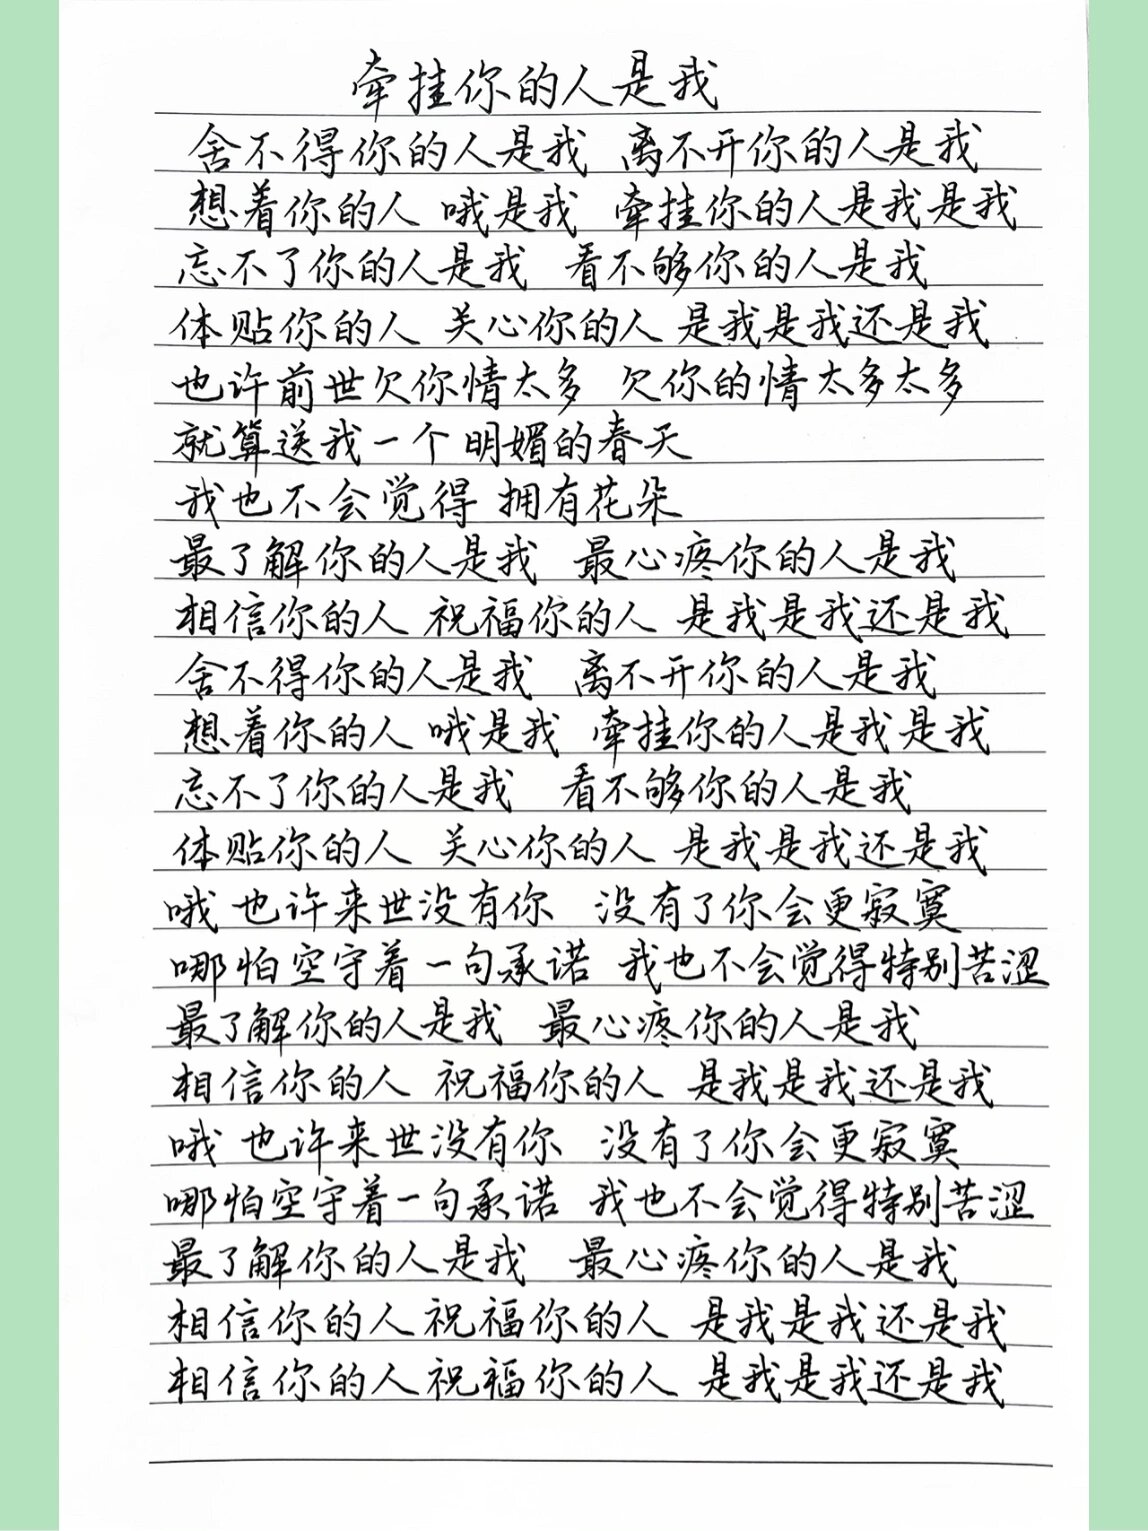 牵挂你的人是我
舍不得你的人是我 离不开你的人是我
想着你的人 哦是我 牵挂你的人是我是我
忘不了你的人是我 看不够你的人是我
体贴你的人 关心你的人 是我是我还是我
也许前世欠你情太多 欠你的情太多太多
就算送我一个明媚的春天
我也不会觉得 拥有花朵
最了解你的人是我 最心疼你的人是我
相信你的人 祝福你的人 是我是我还是我
舍不得你的人是我 离不开你的人是我
想着你的人 哦是我 牵挂你的人是我是我
忘不了你的人是我 看不够你的人是我
体贴你的人 关心你的人 是我是我还是我
哦 也许来世没有你 没有了你会更寂寞
哪怕空守着一句承诺 我也不会觉得特别苦涩
最了解你的人是我 最心疼你的人是我
相信你的人 祝福你的人 是我是我还是我
哦 也许来世没有你 没有了你会更寂寞
哪怕空守着一句承诺 我也不会觉得特别苦涩
最了解你的人是我 最心疼你的人是我
相信你的人祝福你的人 是我是我还是我
相信你的人祝福你的人 是我是我还是我